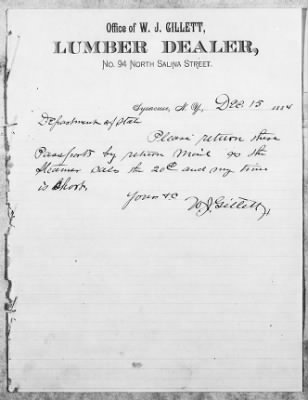 Office of W. J. GILLETT,
LUMBER DEALER,
No. 94 NORTH SALINA STREET.
Syracuse, N. Y., Dec. 15 1884
Department of State
Please return these
Passports by return Mail as the
Steamer sails the 20th and my time
is Short.
Yours &c
W. J. Gillett,